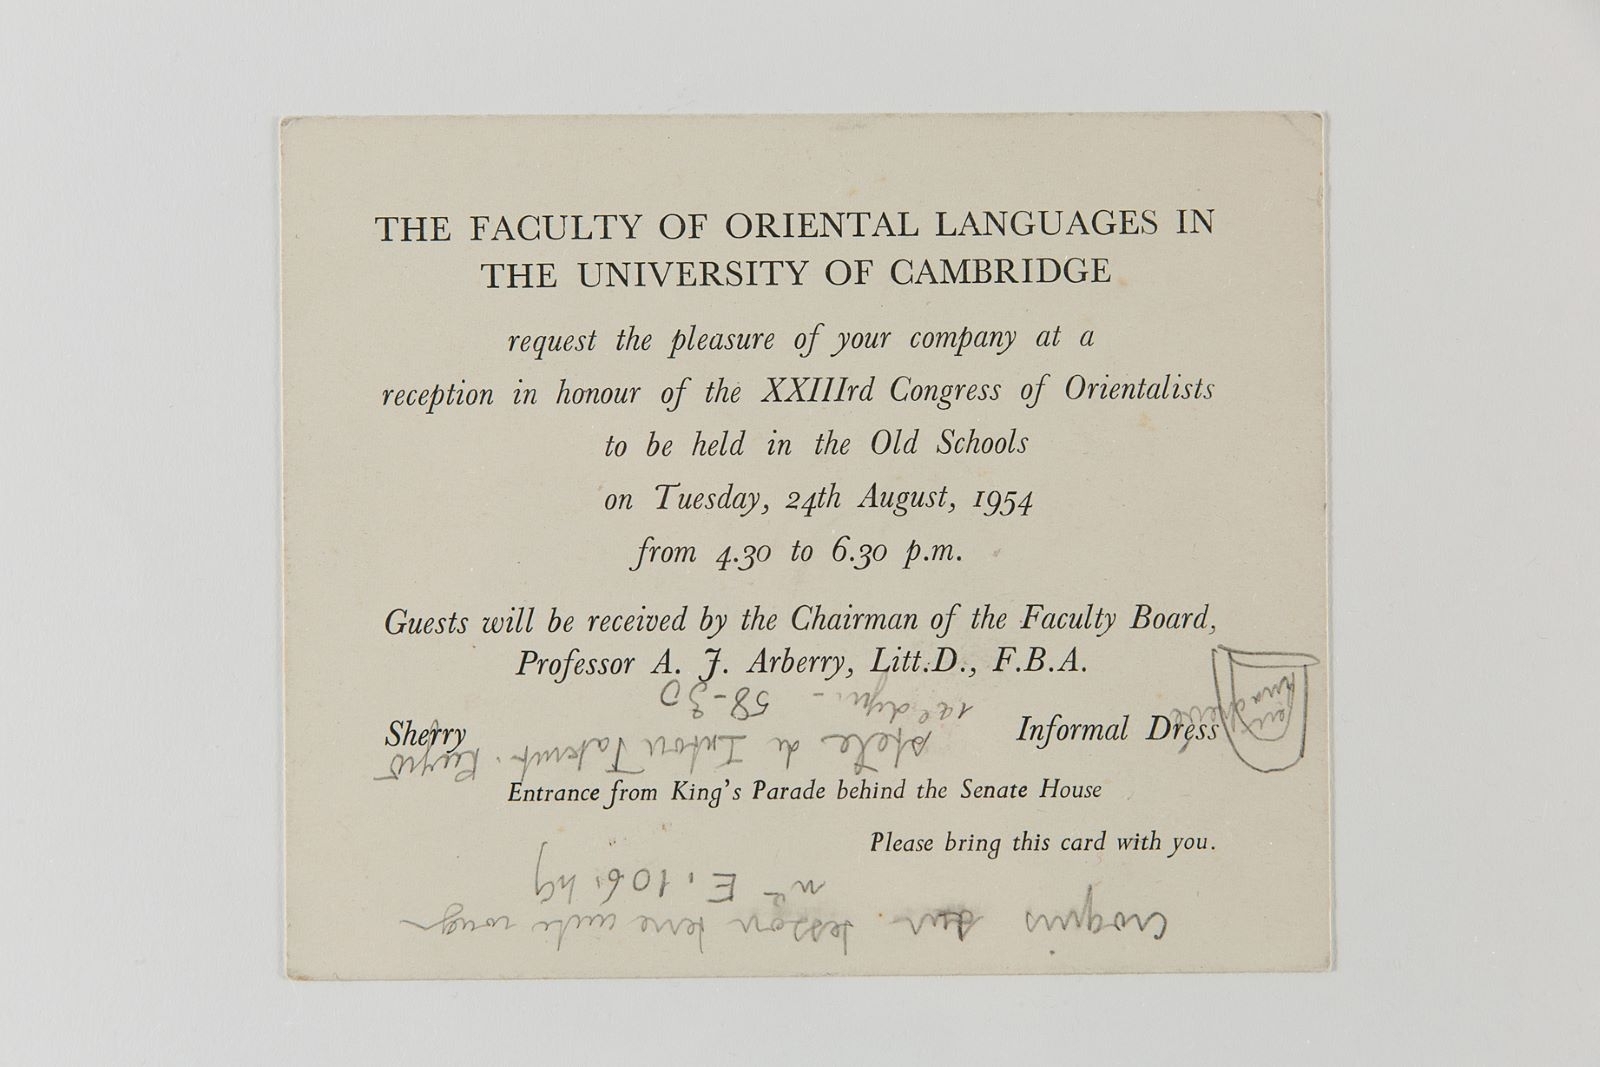 THE FACULTY OF ORIENTAL LANGUAGES IN
THE UNIVERSITY OF CAMBRIDGE
request the pleasure of your company at a
reception in honour of the XXIIIrd Congress of Orientalists
to be held in the Old Schools
on Tuesday, 24th August, 1954
from 4.30 to 6.30 p.m.
Guests will be received by the Chairman of the Faculty Board,
Professor A. J. Arberry, Litt.D., F.B.A.
Sherry Informal Dress
Entrance from King's Parade behind the Senate House
Please bring this card with you.
croquis sur tesson terre cuite rouge
nº E.106.
stele de
58-30